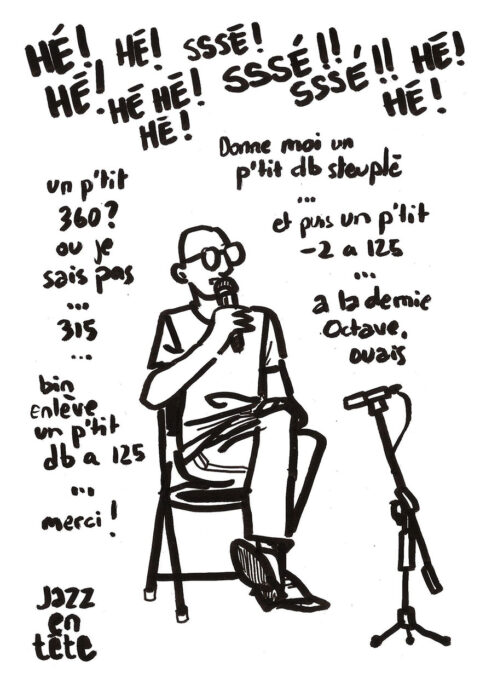 HÉ! HÉ! SSSÉ! SSSÉ!! SSSÉ!! HÉ!
HÉ! HÉ HÉ! HÉ! HÉ!
Donne moi un
p'tit db stouplé
...
et puis un p'tit
-2 a 125
...
a la demie
Octave,
ouais
un p'tit
360?
ou je
sais pas
...
315
...
bin
enlève
un p'tit
db a 125
...
merci!
Jazz
en
tête